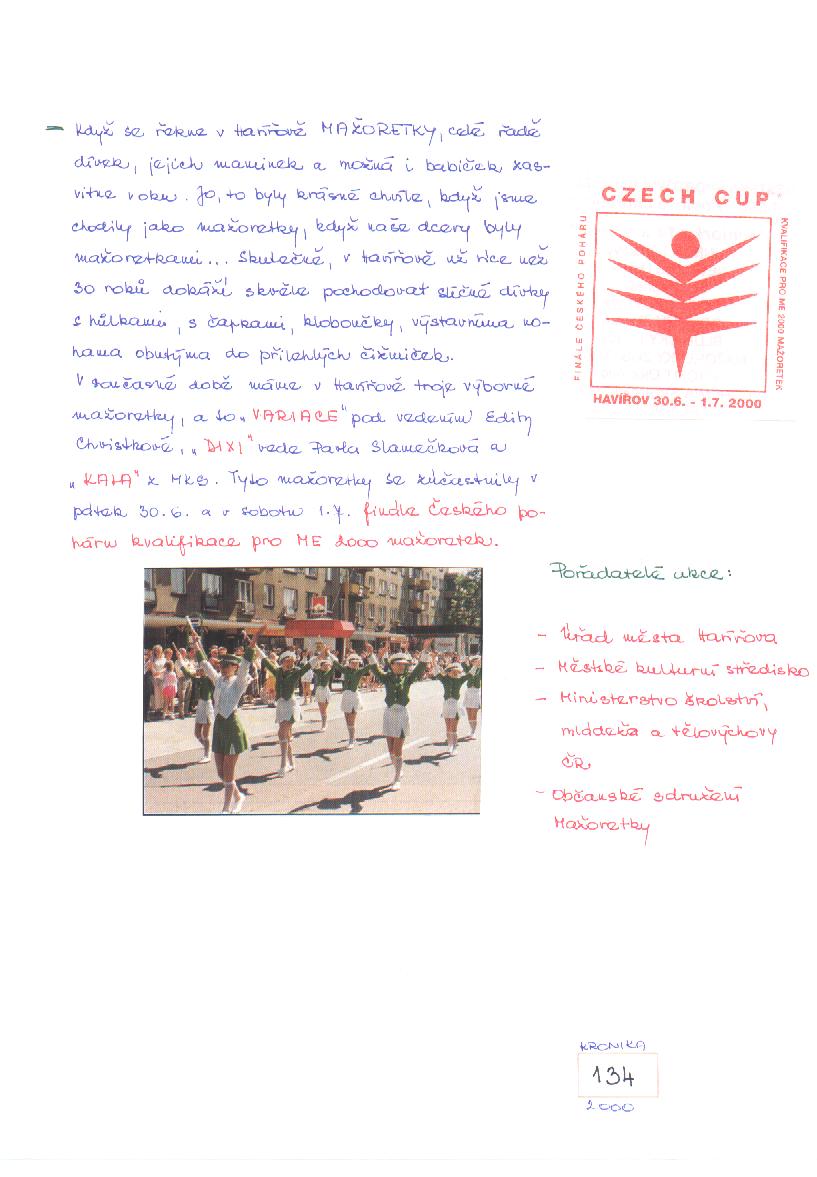 - Když se řekne v Havířově MAŽORETKY, celé řadě
dívek, jejich maminek a možná i babiček zas-
vitne v oku. Jo, to byly krásné chvíle, když jsme
chodily jako mažoretky, když naše dcery byly
mažoretkami... Skutečně, v Havířově už více než
30 roků dokáží skvěle pochodovat sličné dívky
s hůlkami, s čapkami, kloboučky, výstavníma no-
hama obutýma do přilehlých čižmiček.
V současné době máme v Havířově troje výborné
mažoretky, a to „VARIACE" pod vedením Edity
Chvistkové, „DIXI" vede Pavla Slamečková a
„KALA" z MKS. Tyto mažoretky se zúčastnily v
pátek 30.6. a v sobotu 1.7. finále Českého po-
háru kvalifikace pro ME 2000 mažoretek.
CZECH CUP
FINÁLE ČESKÉHO POHÁRU
KVALIFIKACE PRO ME 2000 MAŽORETEK
HAVÍŘOV 30.6. - 1.7. 2000
Pořadatelé akce:
- Úřad města Havířova
- Městské kulturní středisko
- Ministerstvo školství,
mládeže a tělovýchovy
ČR
- Občanské sdružení
Mažoretky
KRONIKA
134
2000